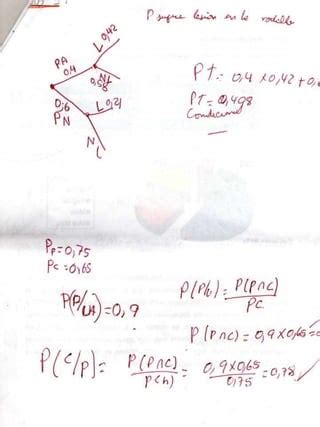 P sufre lesión en la rodilla
L 0,42
PA
0,4
NL
0,58
PT = 0,4 x 0,42 + 0,
0,6
L 0,21
PN
PT = 0,498
Condicional
N
L
Pp = 0,75
Pc = 0,65
= 0,9
P(P∩C)
PC
P(P∩C) = 0,9 x 0,65 =
P(C/P) = P(P∩C) = 0,9 x 0,65 = 0,78
0,75